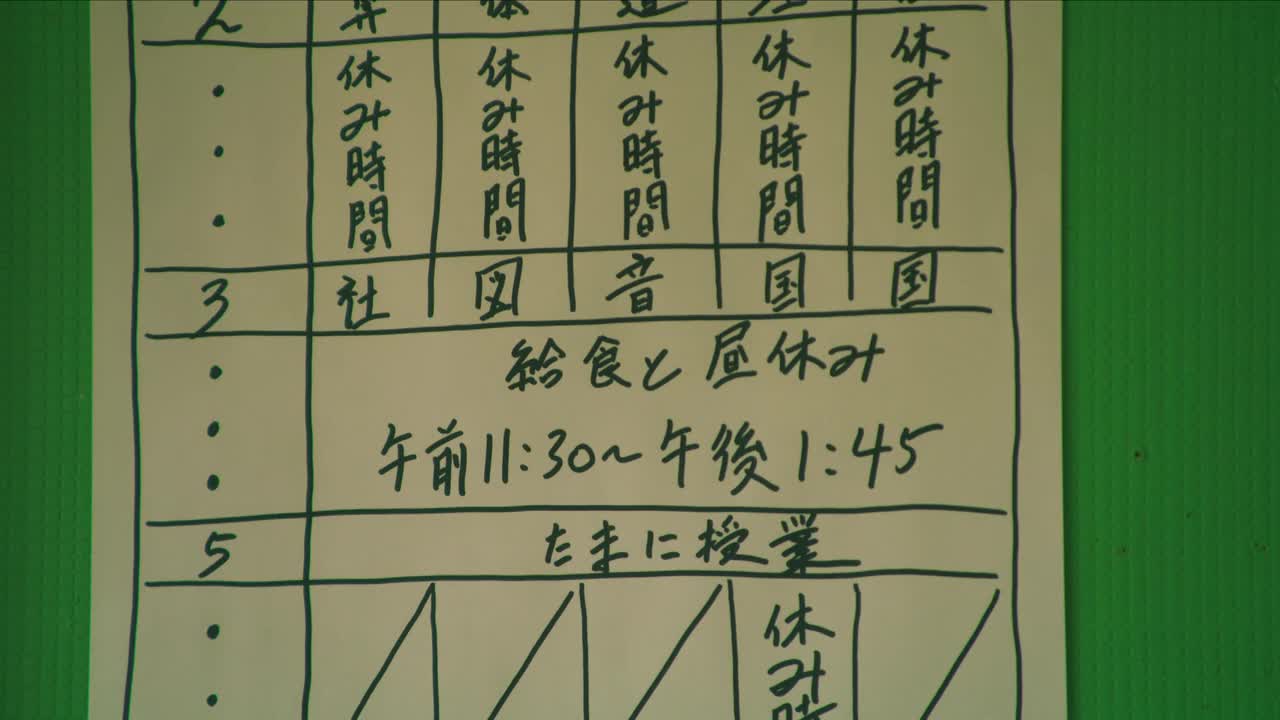 2 算 体 道 理
休み時間 休み時間 休み時間 休み時間 休み時間
3 社 図 音 国 国
給食と昼休み
午前11:30～午後1:45
5 たまに授業
休み時